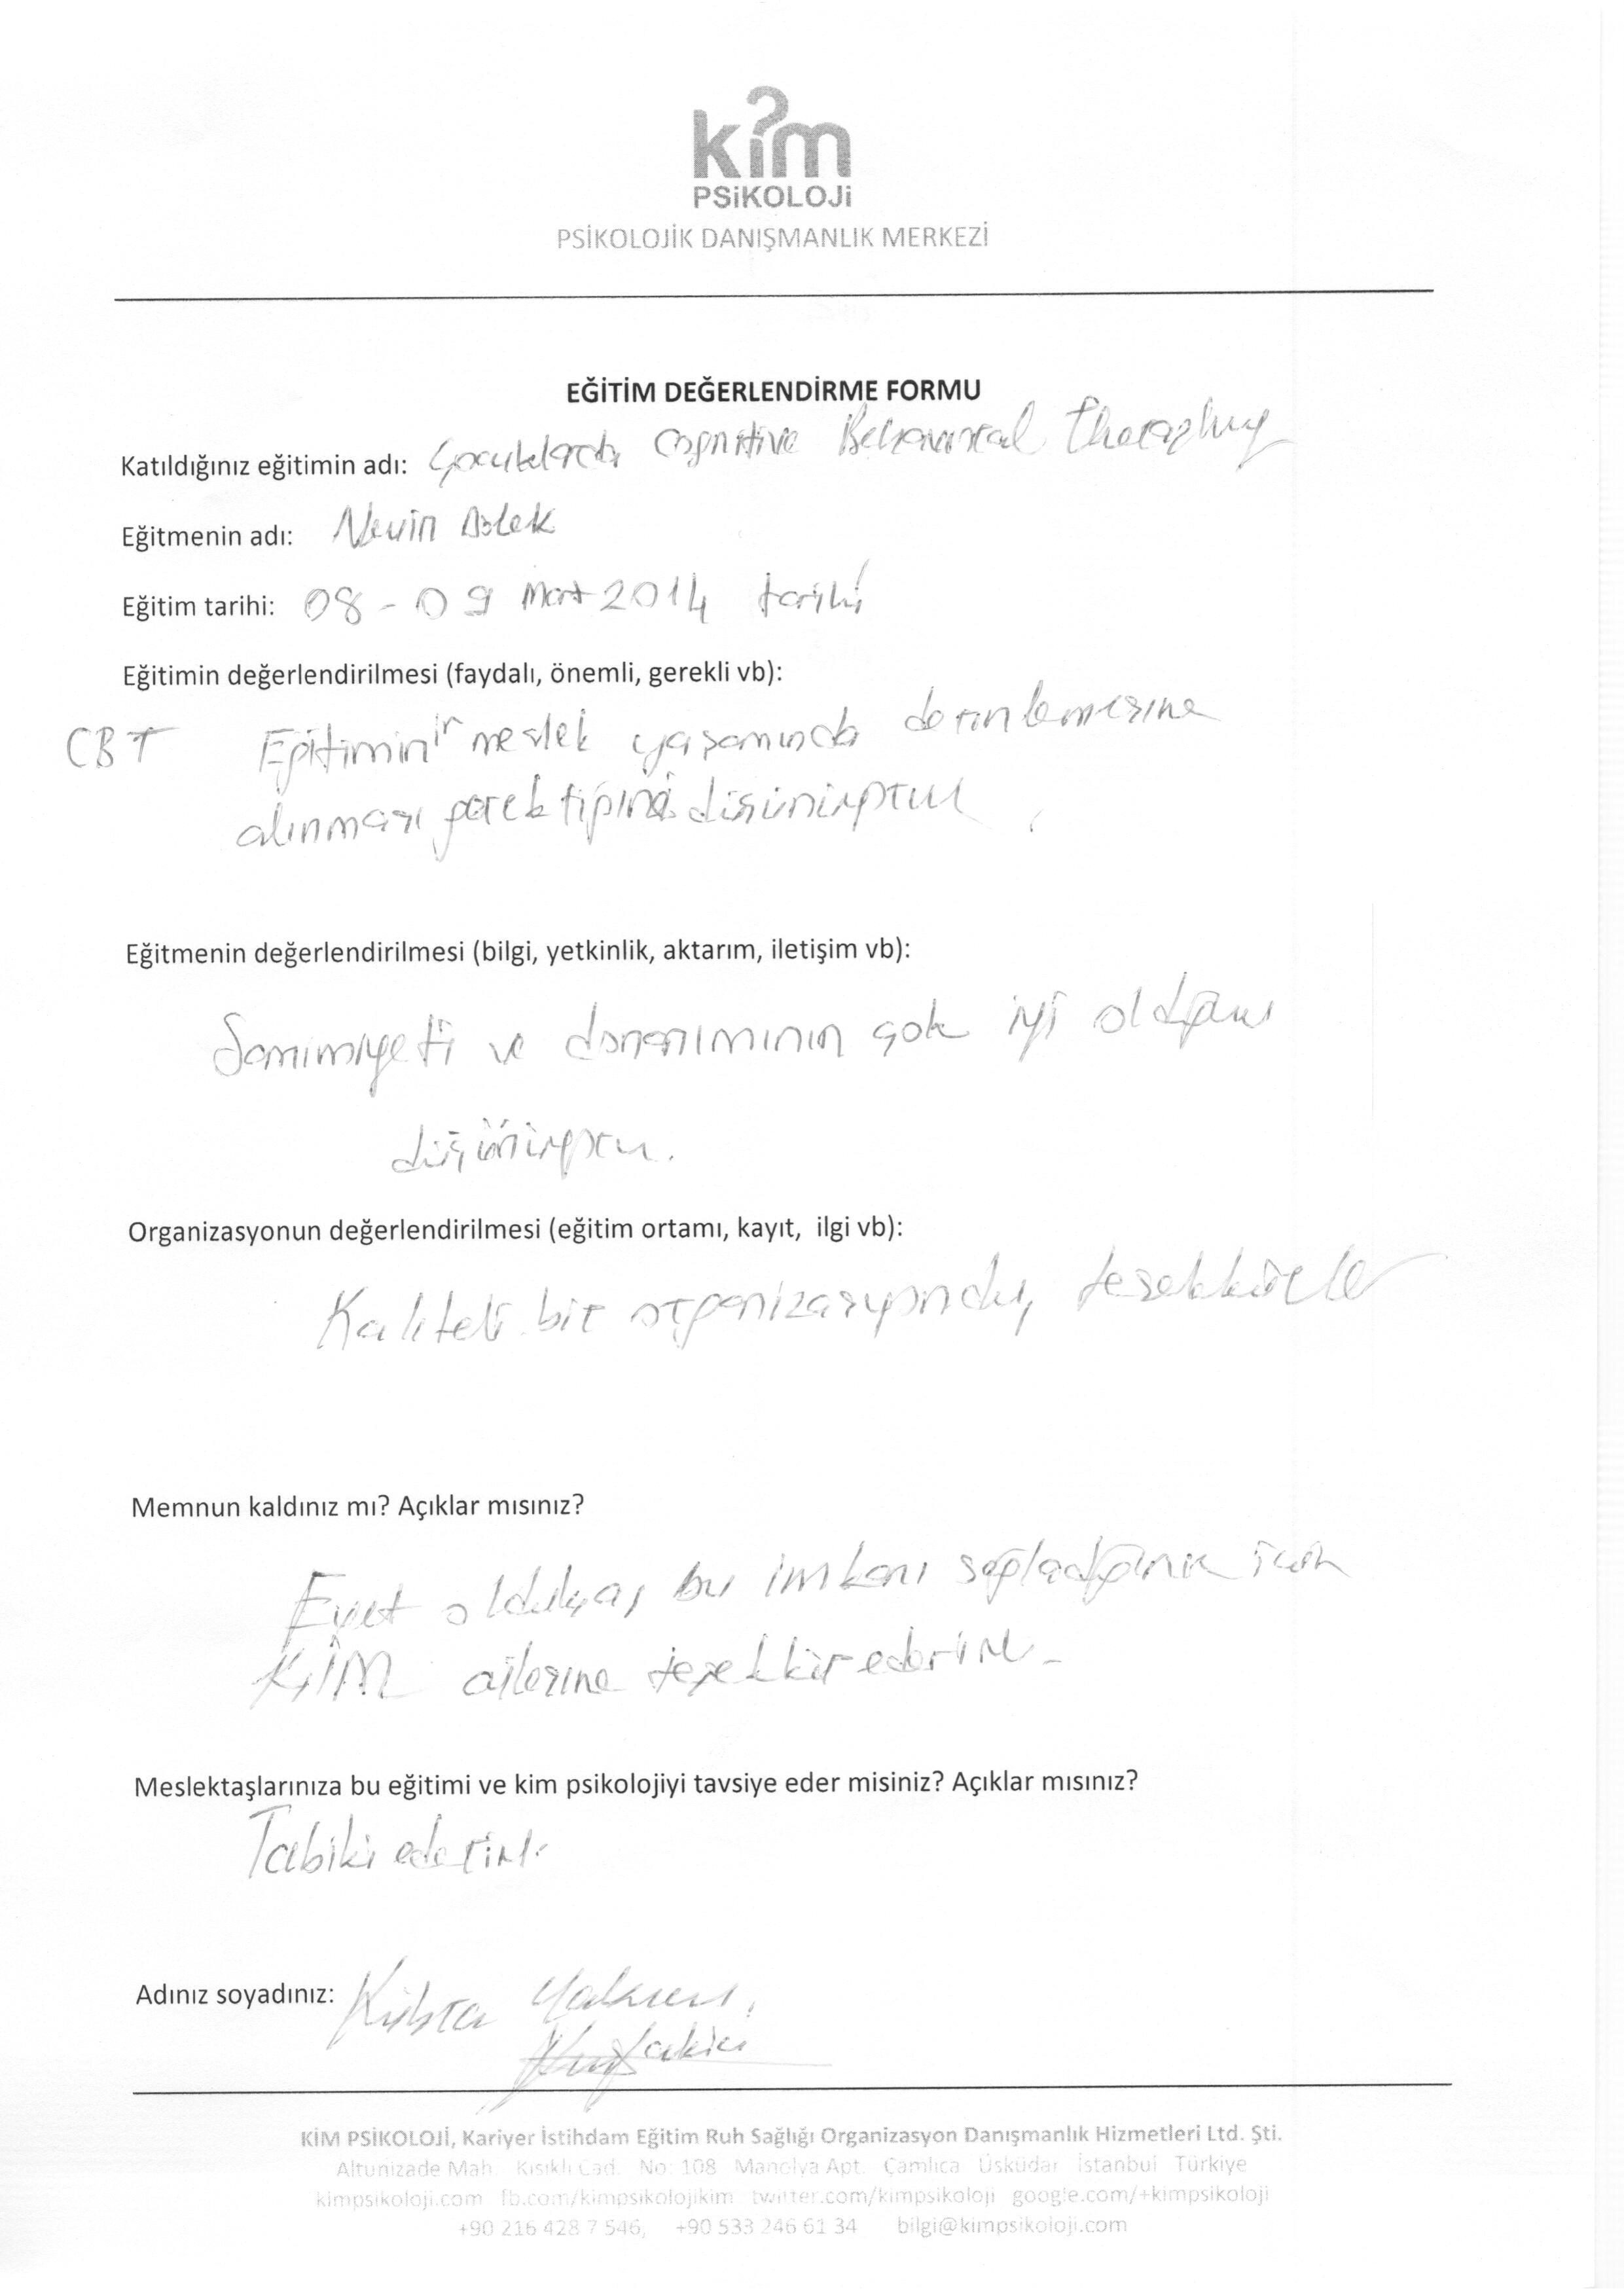 kim
PSİKOLOJİ
PSİKOLOJİK DANIŞMANLIK MERKEZİ
EĞİTİM DEĞERLENDİRME FORMU
Katıldığınız eğitimin adı: Çocuklarda Cognitive Behavioral Theraphy
Eğitmenin adı: Nevin Dölek
Eğitim tarihi: 08 - 09 Mart 2014 tarihi
Eğitimin değerlendirilmesi (faydalı, önemli, gerekli vb):
CBT Eğitiminin meslek yaşamında derinlemesine
alınması gerektiğini düşünüyorum.
Eğitmenin değerlendirilmesi (bilgi, yetkinlik, aktarım, iletişim vb):
Samimiyeti ve donanımının çok iyi olduğunu
düşünüyorum.
Organizasyonun değerlendirilmesi (eğitim ortamı, kayıt, ilgi vb):
Kaliteli bir organizasyondu, teşekkürler
Memnun kaldınız mı? Açıklar mısınız?
Evet oldukça, bu imkanı sağladığınız için
KİM ailesine teşekkür ederim.
Meslektaşlarınıza bu eğitimi ve kim psikolojiyi tavsiye eder misiniz? Açıklar mısınız?
Tabiki ederim.
Adınız soyadınız: Kübra
KİM PSİKOLOJİ, Kariyer İstihdam Eğitim Ruh Sağlığı Organizasyon Danışmanlık Hizmetleri Ltd. Şti.
Altunizade Mah. Kısıklı Cad. No: 108 Manolya Apt. Çamlıca Üsküdar İstanbul Türkiye
kimpsikoloji.com fb.com/kimpsikolojikim twitter.com/kimpsikoloji google.com/+kimpsikoloji
+90 216 428 7 546, +90 533 246 61 34 bilgi@kimpsikoloji.com